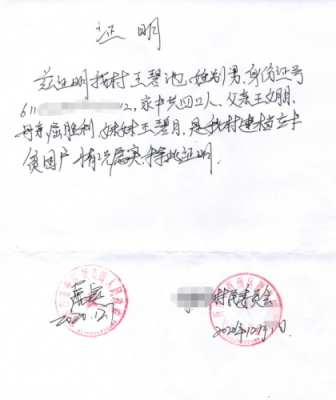 证明
兹证明我村王碧池，性别男，身份证号
611 2，家中共四口人，父亲王文朋，
母亲屈胜利，妹妹王碧月，是我村建档立卡
贫困户，情况属实，特此证明。
属实
2020.12.1
村民委员会
2020年12月1日